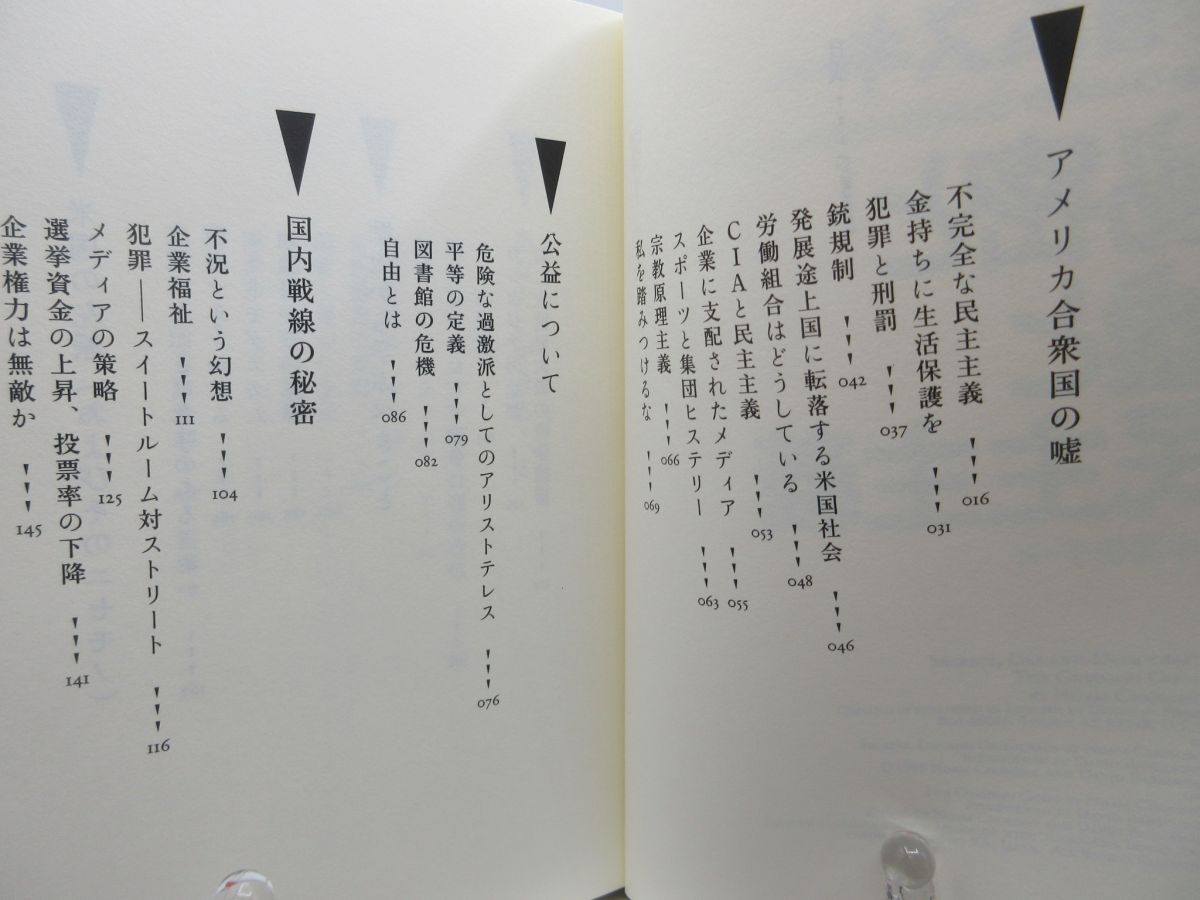 アメリカ合衆国の嘘
不完全な民主主義 016
金持ちに生活保護を 031
犯罪と刑罰 037
銃規制 042
発展途上国に転落する米国社会 046
労働組合はどうしている 048
CIAと民主主義 053
企業に支配されたメディア 055
スポーツと集団ヒステリー 063
宗教原理主義 066
私を踏みつけるな 069
公益について
危険な過激派としてのアリストテレス 076
平等の定義 079
図書館の危機 082
自由とは 086
国内戦線の秘密
不況という幻想 104
企業福祉 111
犯罪――スイートルーム対ストリート 116
メディアの策略 125
選挙資金の上昇、投票率の下降 141
企業権力は無敵か 145